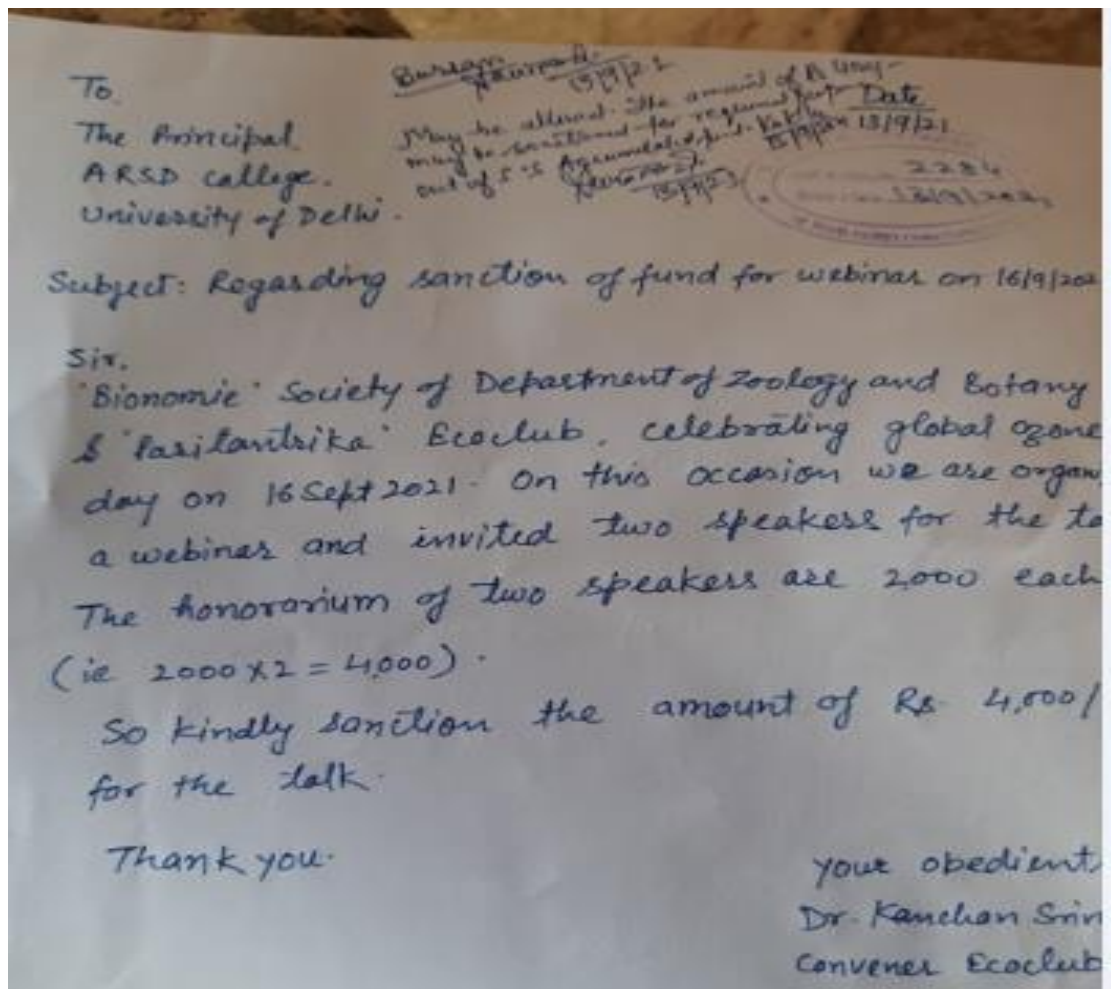 To,
The Principal
ARSD College.
University of Delhi.
Bursar
13/9/21
May be allowed. The amount of Rs
may be sanctioned for
out of S.S fund.
Date
13/9/21
2284
13/9/2021
Subject: Regarding sanction of fund for webinar on 16/9/202
Sir,
'Bionomie' Society of Department of Zoology and Botany
& 'Paritantrika' Ecoclub, celebrating global ozone
day on 16 Sept 2021. On this occasion we are organ
a webinar and invited two speakers for the ta
The honorarium of two speakers are 2,000 each
(ie 2000 x 2 = 4,000).
So kindly sanction the amount of Rs 4,000/
for the talk.
Thank you.
your obedient
Dr. Kanchan Sriv
Convener Ecoclub